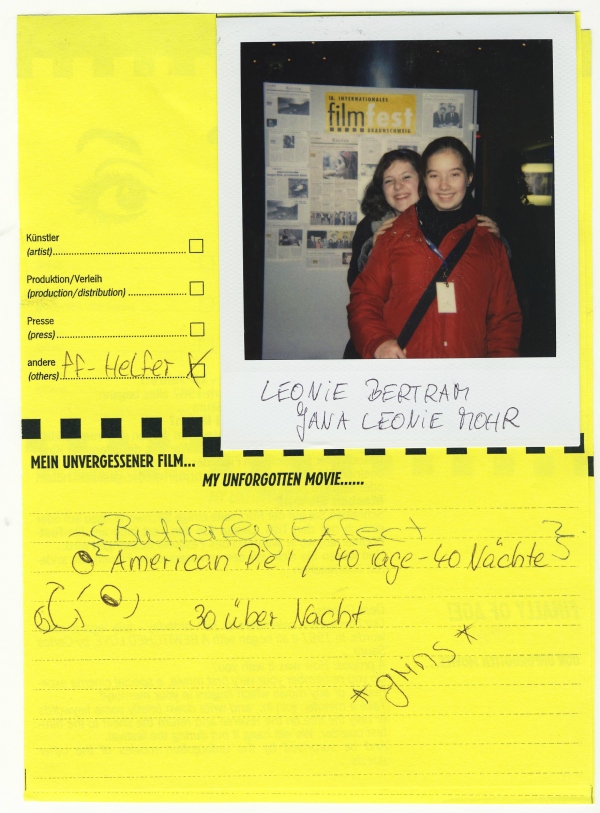 18. INTERNATIONALES
filmfest
BRAUNSCHWEIG
Künstler
(artist)
Produktion/Verleih
(production/distribution)
Presse
(press)
andere
(others) ff-Helfer X
LEONIE BERTRAM
JANA LEONIE MOHR
MEIN UNVERGESSENER FILM...
MY UNFORGOTTEN MOVIE......
Butterfley Effect
American Pie 1 / 40 Tage - 40 Nächte
30 über Nacht
*grins*